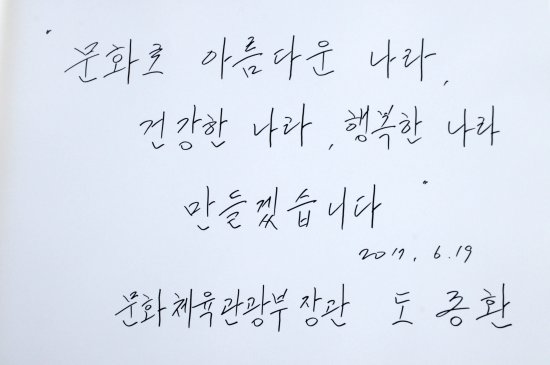 "문화로 아름다운 나라,
건강한 나라, 행복한 나라
만들겠습니다"
2017. 6. 19
문화체육관광부장관 도종환